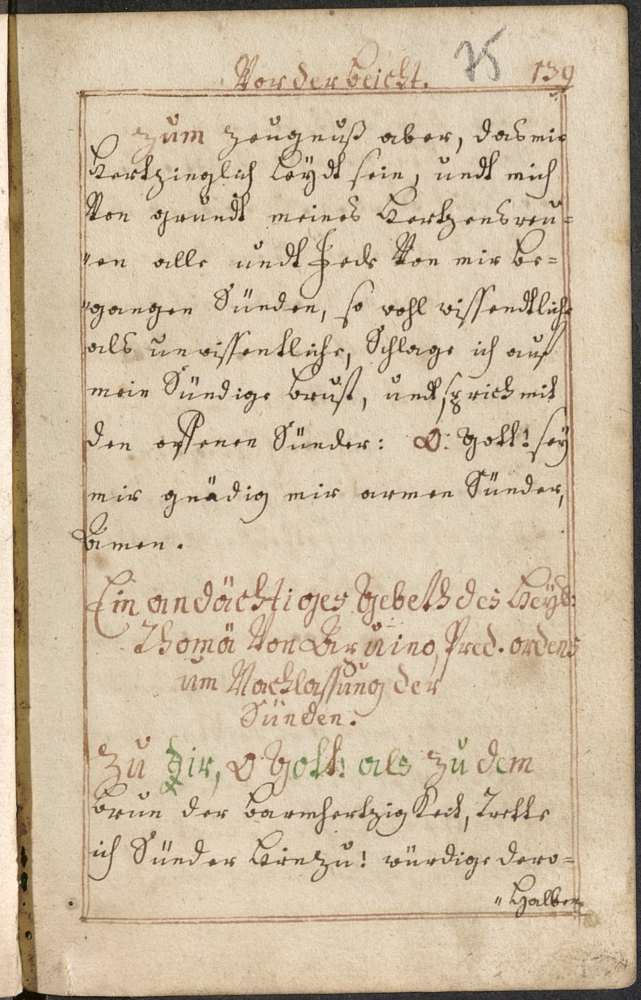 Vor der beicht.
75
139
Zum zeugnuß aber, das mir
Hertzinglich leydt sein, undt mich
Von grundt meines Hertzens reu=
"en alle undt Jede Von mir be=
"gangen Sünden, so wohl wissendtliche
als unwissentliche, Schlage ich auf
mein Sündige brust, undt sprich mit
den offenen Sünder: O: Gott! sey
mir gnädig mir armen Sünder,
Amen.
Ein andächtiges Gebeth des Heyl:
Thomä Von Aquino, Pred. ordens
um Nachlassung der
Sünden.
Zu Dir, O Gott! als zu dem
brun der barmhertzigkeit, Trette
ich Sünder hinzu! würdige dero=
"halben